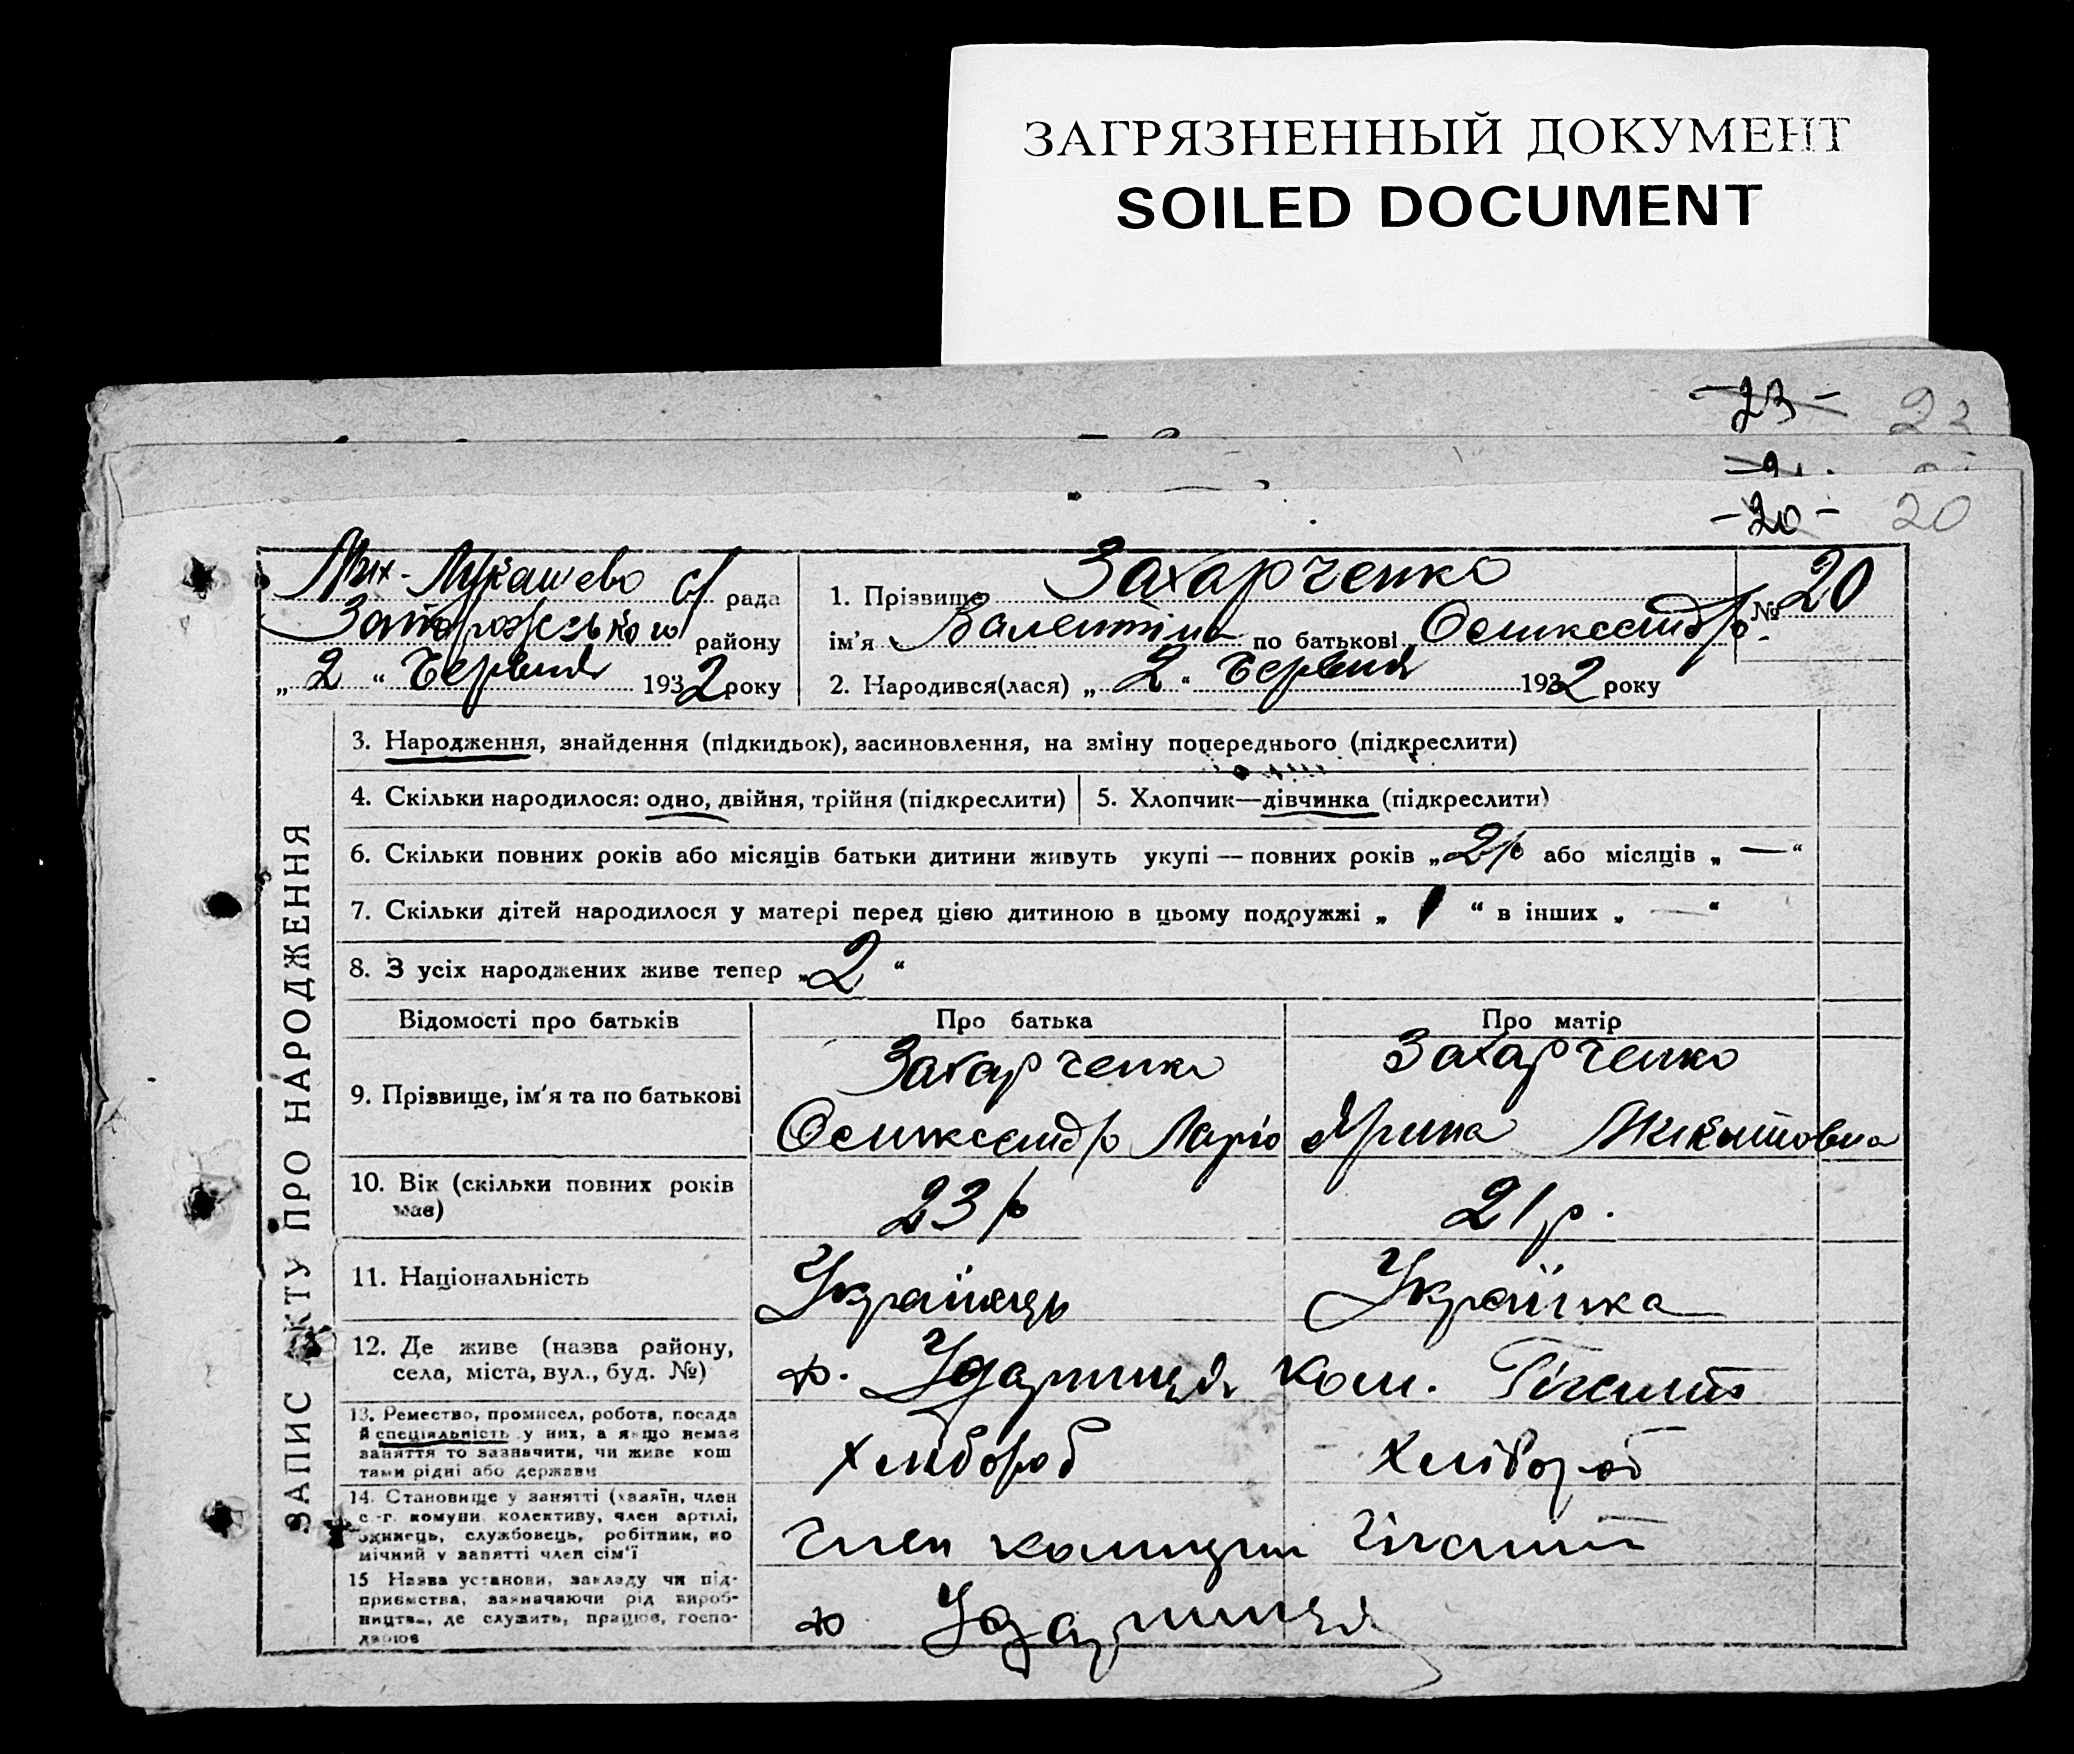 ЗАГРЯЗНЕННЫЙ ДОКУМЕНТ
SOILED DOCUMENT
-23- 23
-20- 20
Мих-Лукашево с/ рада
Запорожського району
„ 2 “ Червня 1932 року
1. Прізвище Захарченко
ім'я Валентина по батькові Олександр. № 20
2. Народився(лася) „ 2 “ Червня 1932 року
ЗАПИС АКТУ ПРО НАРОДЖЕННЯ
3. Народження, знайдення (підкидьок), засиновлення, на зміну попереднього (підкреслити)
4. Скільки народилося: одно, двійня, трійня (підкреслити) 5. Хлопчик—дівчинка (підкреслити)
6. Скільки повних років або місяців батьки дитини живуть укупі — повних років „ 2 р або місяців „ — “
7. Скільки дітей народилося у матері перед цією дитиною в цьому подружжі „ 1 “ в інших „ — “
8. З усіх народжених живе тепер „ 2 “
Відомості про батьків Про батька Про матір
9. Прізвище, ім'я та по батькові
Захарченко Захарченко
Олександр Ларіо Ярина Микитовна
10. Вік (скільки повних років
має)
23 р 21 р.
11. Національність Українець Українка
12. Де живе (назва району,
села, міста, вул., буд. №)
х. Ударниця Ком. Гігант
13. Ремество, промисел, робота, посада
й спеціяльність у них, а якщо немає
заняття то зазначити, чи живе кош
тами рідні або держави
Хлібороб Хлібороб
14. Становище у занятті (хазяїн, член
с.-г. комуни колективу, член артілі,
одинець, службовець, робітник, по
мічний у занятті член сім'ї
Член комуни Гігант
15 Назва установи, закладу чи під-
приємства, зазначаючи рід вироб-
ництва, де служить, працює, госпо-
дарює
х Ударниця